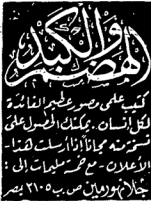 الهضم والكبد
كتيب علمي مصور عظيم الفائدة
لكل انسان. يمكنك الحصول على
نسخة منه مجاناً اذا ارسلت هذا
الاعلان - مع خمسة مليمات إلى:
ص.ب ٢١٠٥ بمصر